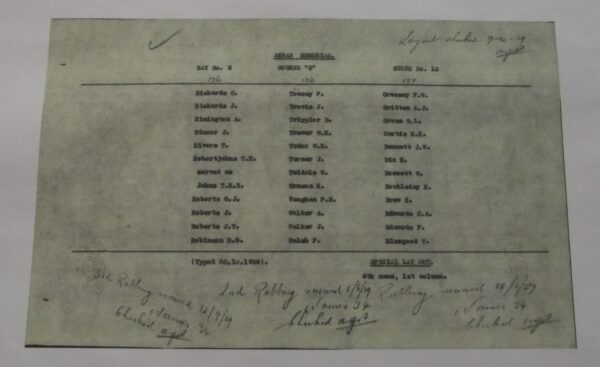 Layout checked 9-11-29
ARRAS MEMORIAL.
BAY No. 3 COURSE "G" STONE No. 1C
Richards G. Tracey F. Cressey P.W.
Richards J. Travis J. Critten A.J.
Rimington A. Trippier D. Cross W.L.
Rimmer J. Trower W.E. Curtis H.H.
Rivers T. Tudor W.H. Dennett J.W.
Robertjohns T.H. Turner J. Dix R.
served as Twiddle W.
Johns T.H.H. Doubleday H.
Roberts G.J. Vaughan P.H. Drew H.
Roberts J. Walker A. Edwards
Roberts J.T. Walker J. Edwards F.
Robinson H.G. Walsh F.
(Typed 30.10.1928). SPECIAL LAY OUT.
6th name, 1st column.
2nd Rubbing received 6/5/29
Names 34
Checked
Rubbing received
Names 34
Checked
Rubbing received 12/7/29
Names 34
Checked